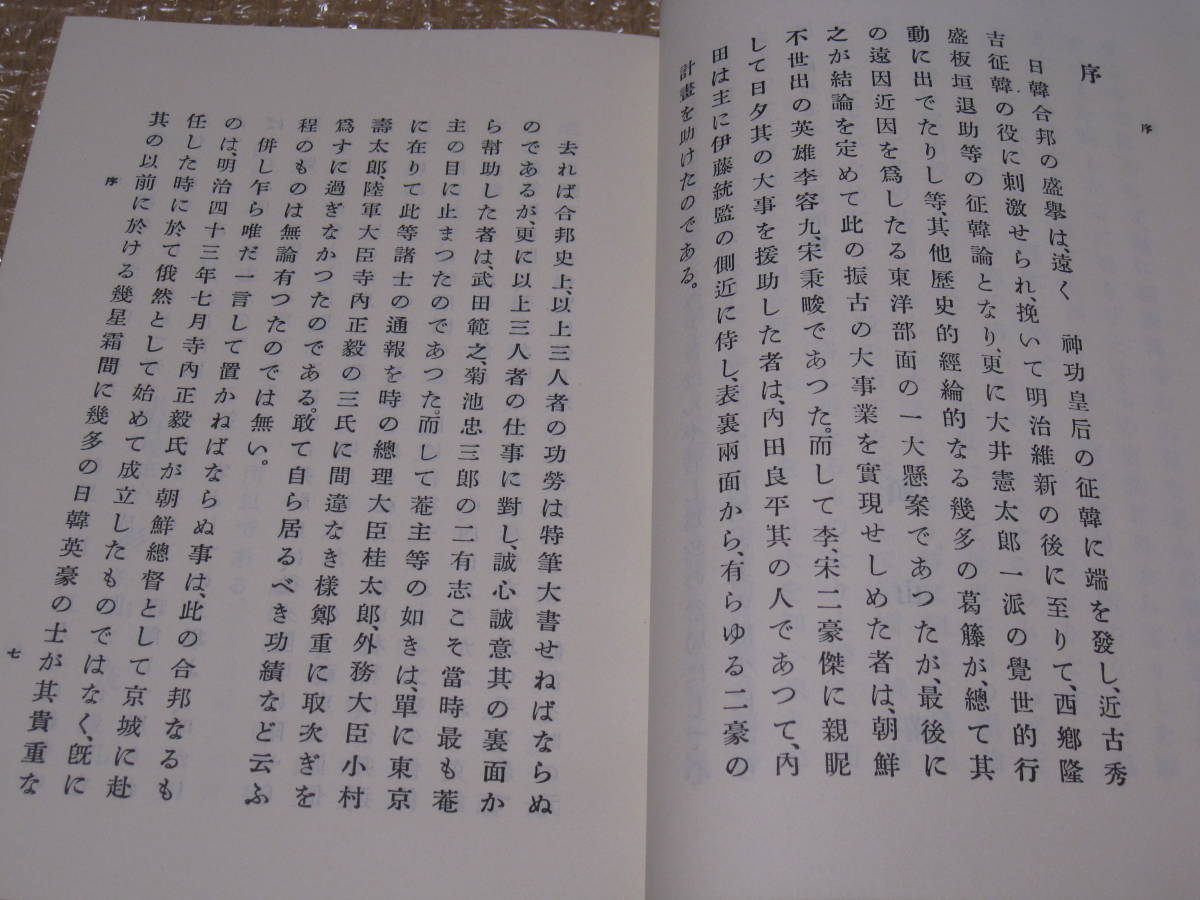 序
序
日韓合邦の盛擧は、遠く　神功皇后の征韓に端を發し、近古秀
吉征韓の役に刺激せられ、挽いて明治維新の後に至りて、西郷隆
盛板垣退助等の征韓論となり、更に大井憲太郎一派の覺世的行
動に出でたりし等、其他歴史的經綸的なる幾多の葛籐が、總て其
の遠因近因を爲したる東洋部面の一大懸案であつたが、最後に
之が結論を定めて此の振古の大事業を實現せしめた者は、朝鮮
不世出の英雄李容九、宋秉畯であつた。而して李、宋二豪傑に親昵
して日夕其の大事を援助した者は、内田良平其の人であつて、内
田は主に伊藤統監の側近に侍し、表裏兩面から、有らゆる二豪の
計畫を助けたのである。
去れば合邦史上、以上三人者の功勞は特筆大書せねばならぬ
のであるが、更に以上三人者の仕事に對し、誠心誠意其の裏面か
ら幇助した者は、武田範之、菊池忠三郎の二有志こそ當時最も菴
主の目に止まつたのであつた。而して菴主等の如きは、單に東京
に在りて此等諸士の通報を時の總理大臣桂太郎、外務大臣小村
壽太郎、陸軍大臣寺内正毅の三氏に間違なき樣鄭重に取次ぎを
爲すに過ぎなかつたのである。敢て自ら居るべき功績など云ふ
程のものは無論有つたのでは無い。
併し乍ら唯だ一言して置かねばならぬ事は、此の合邦なるも
のは、明治四十三年七月寺内正毅氏が朝鮮總督として京城に赴
任した時に於て俄然として始めて成立したものではなく、既に
其の以前に於ける幾星霜間に幾多の日韓英豪の士が其貴重な
序
七